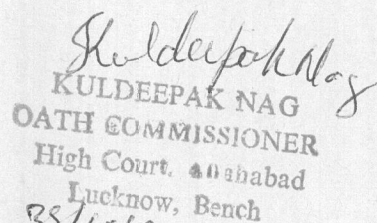 Kuldeepak Nag
KULDEEPAK NAG
OATH COMMISSIONER
High Court, Allahabad
Lucknow, Bench